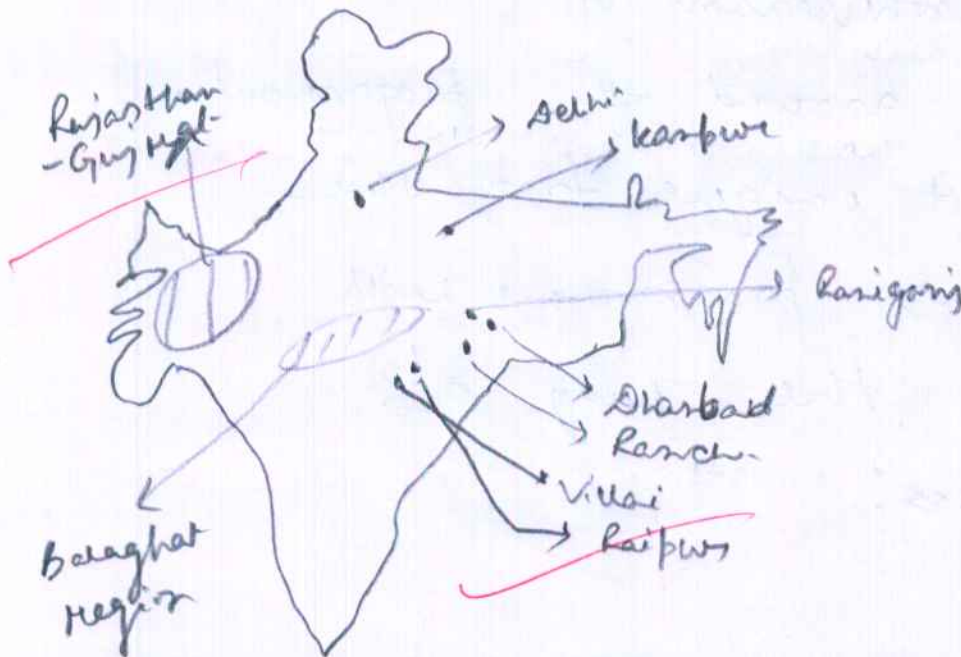 Rajasthan
-Gujrat-
Delhi
Kanpur
Raniganj
Dhanbad
Ranchi
Villai
Raipur
Balaghat
region